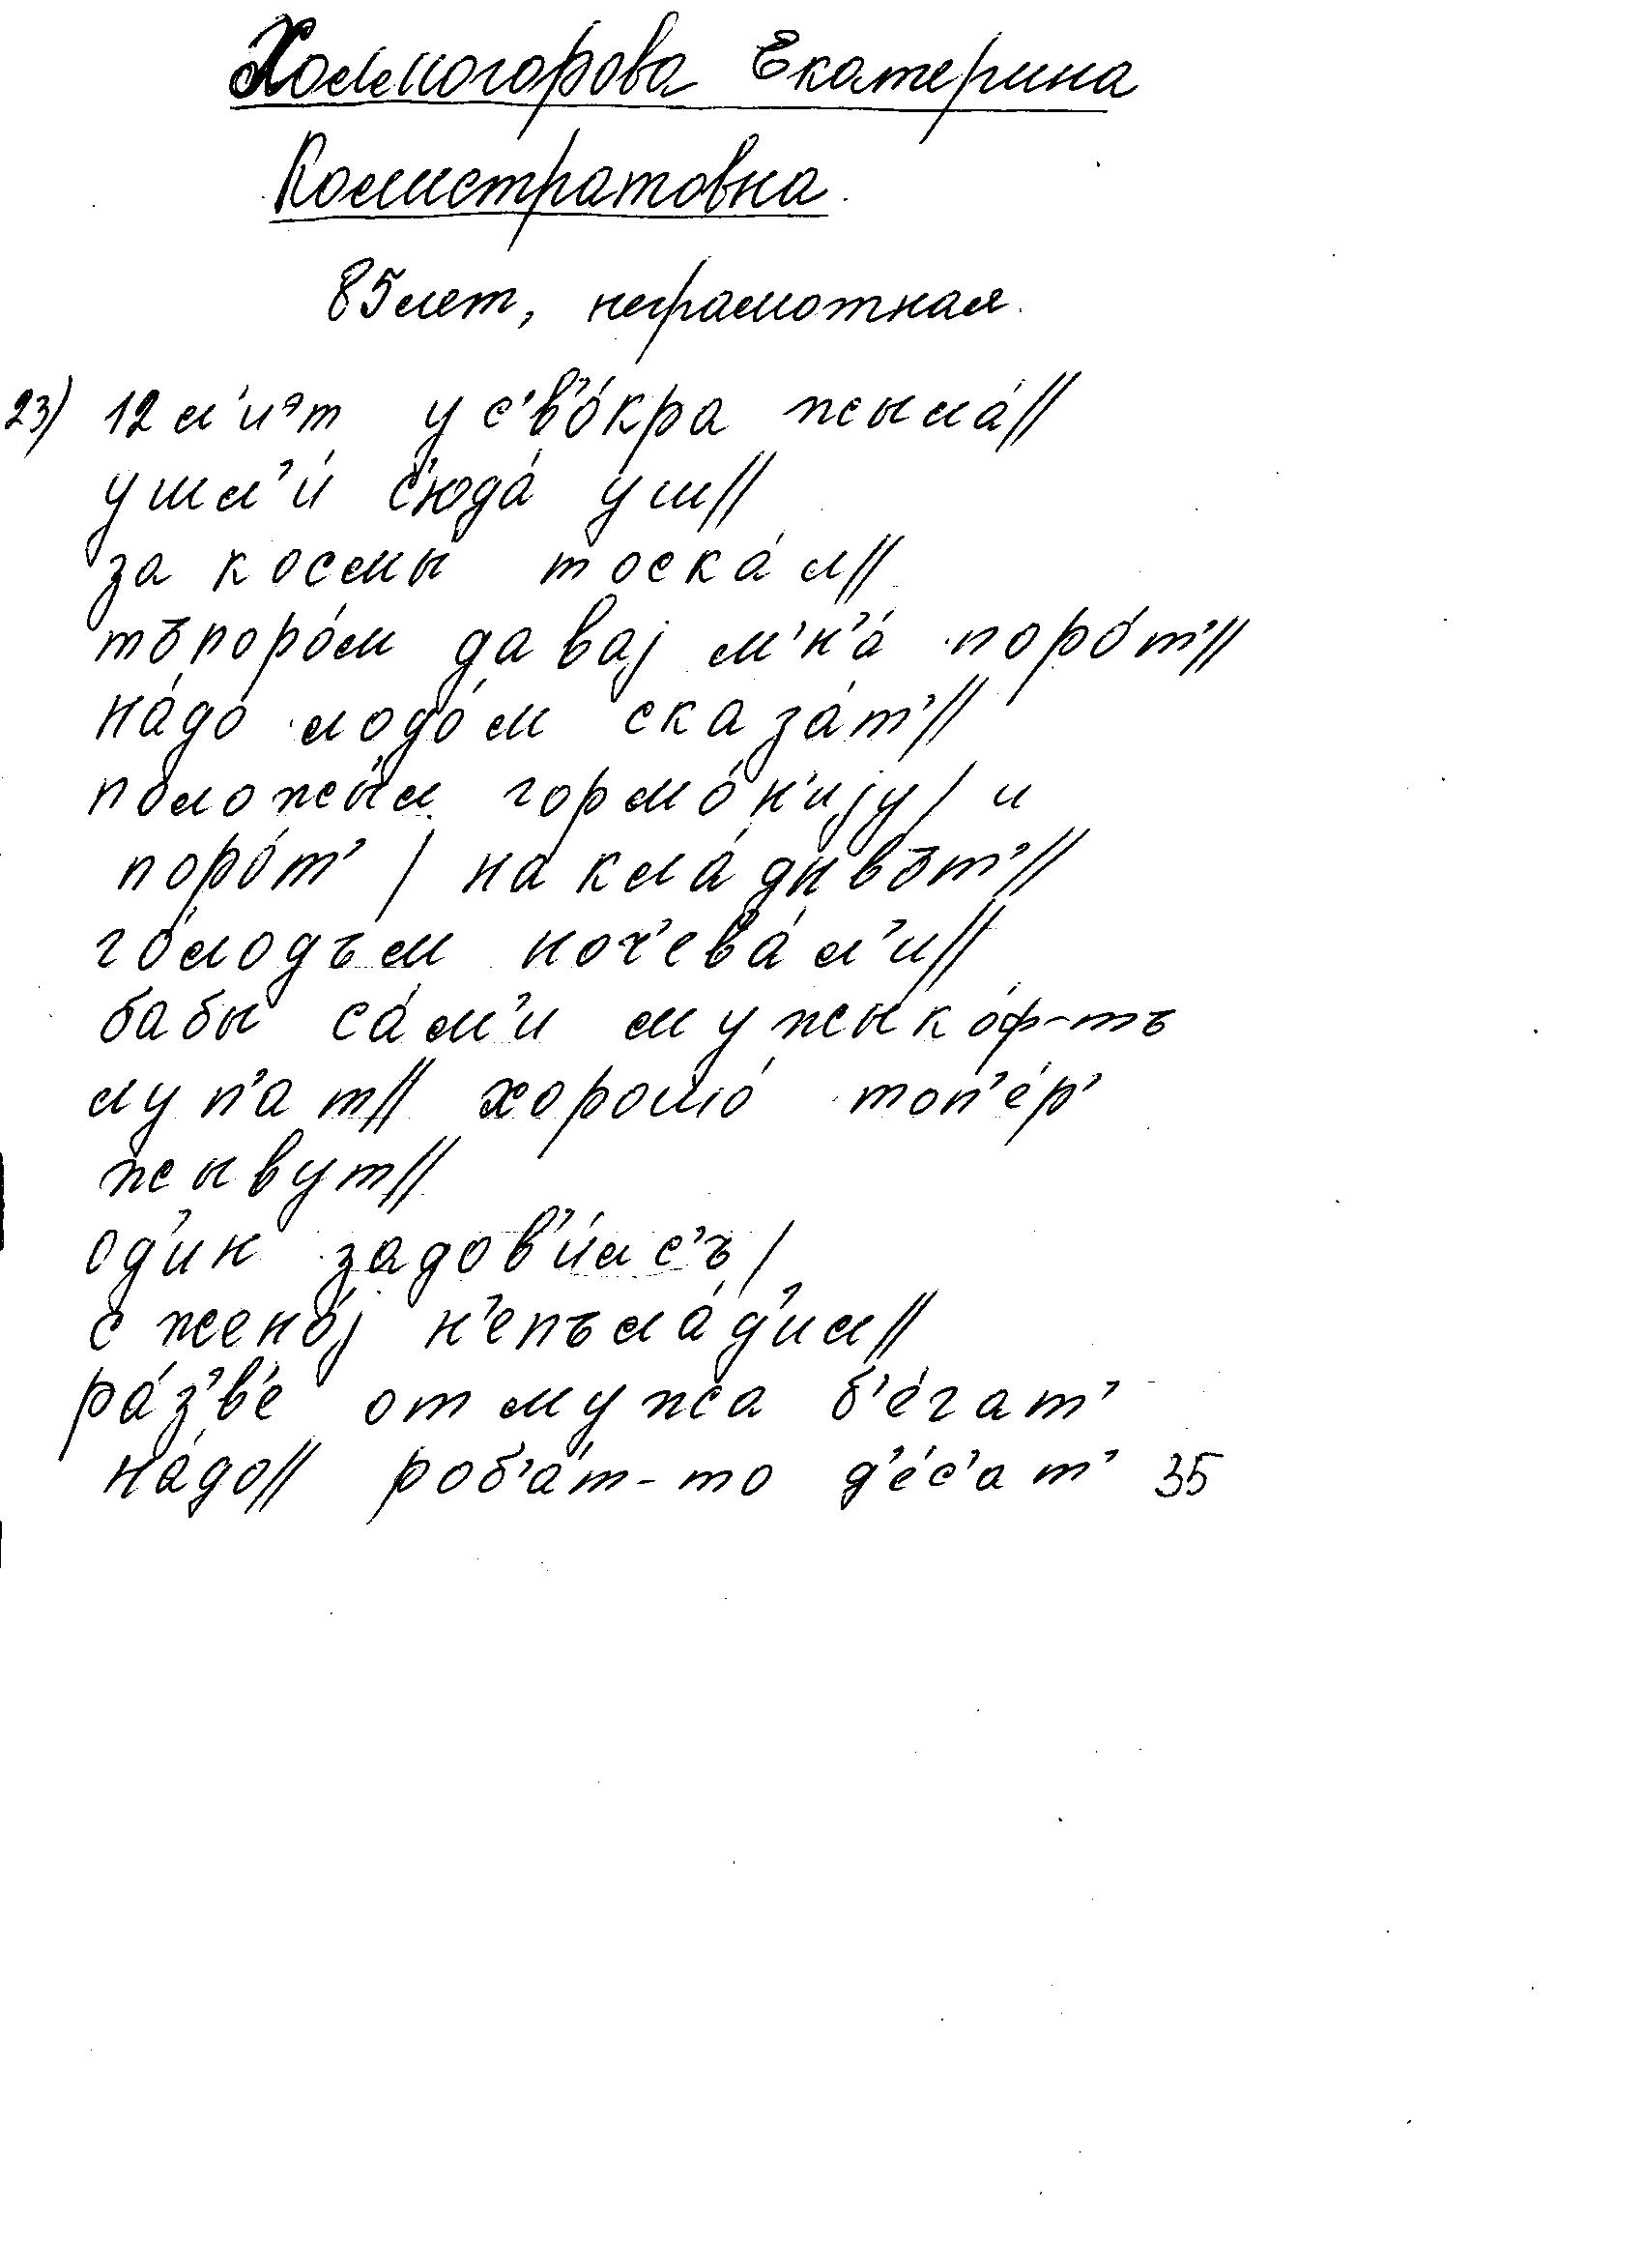 Холмогорова Екатерина
Колистратовна.
85 лет, неграмотная.
23) 12 л'иᵊт у с'в'о́кра жыла́//
ушл'и́ с'юда́ уш//
за космы тоска́л//
тъпоро́м давај м'н'а́ поро́т'//
на́до лодо́м сказа́т'//
положы́л гормо́н'ију/ и
поро́т' / накла́дывът'//
го́лодъм ноч'ева́л'и//
бабы са́м'и мужыко́ф-тъ
луп'ат// хорошо́ топ'е́р'
жывут//
од'ин задов'и́лс'ъ/
с жено́ј н'епъла́д'ил//
ра́з'в'е от мужа б'е́гат'
на́до// роб'а́т-то д'е́с'ат' 35